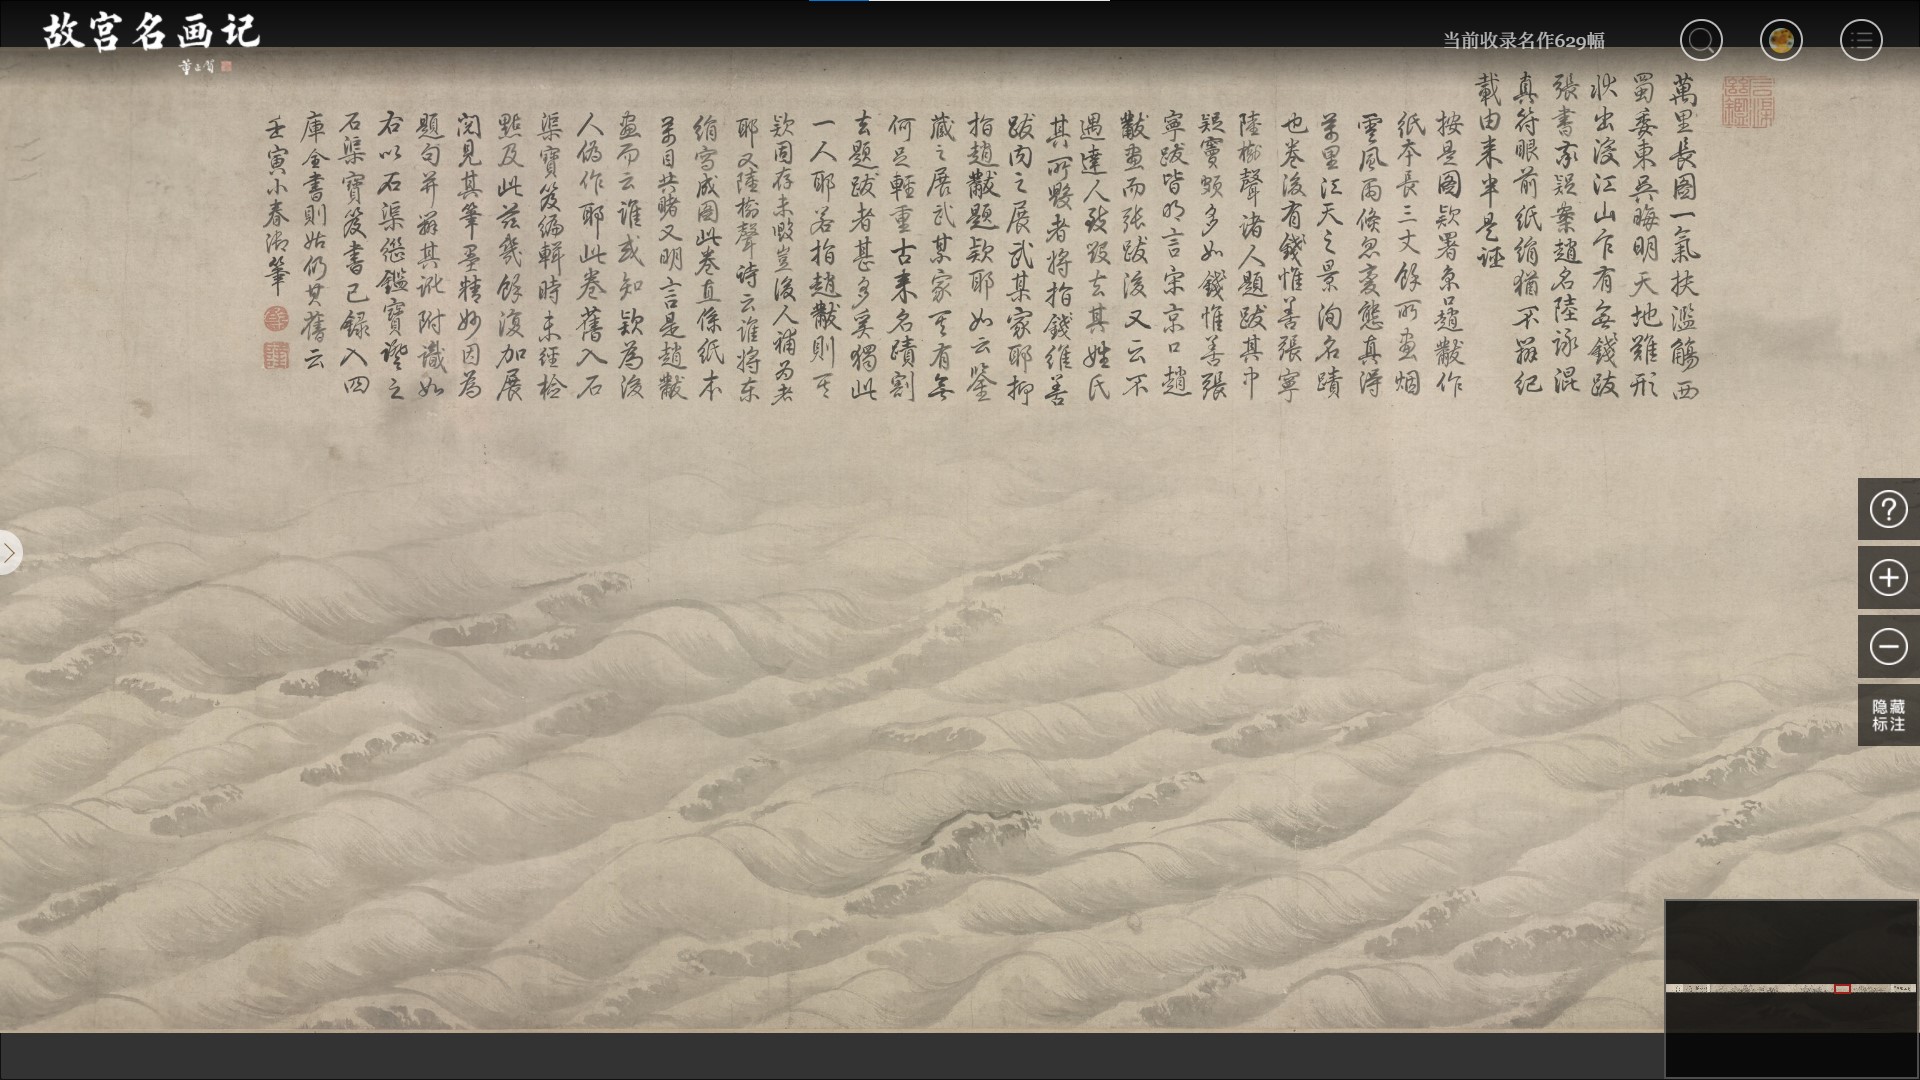 故宫名画记
当前收录名作629幅
萬里長圖一氣扶濫觴西
蜀委東吳晦明天地難形
狀出沒江山乍有無錢跋
張書家疑案趙名陸詠混
真符眼前紙絹猶不辨紀
載由来半是誣
按是圖款署京口趙黻作
紙本長三丈餘所畫烟
雲風雨倏忽变態真得
萬里江天之景洵名蹟
也卷後有錢惟善張寧
陸樹聲諸人題跋其中
疑竇頗多如錢惟善張
寧跋皆明言宋京口趙
黻畫而张跋後又云不
遇達人致毀去其姓氏
其所毀者将指錢維善
跋内之展武某家耶抑
指趙黻題款耶如云鉴
藏之展武某家其有無
何足輕重古来名蹟割
去題跋者甚多奚獨此
一人耶若指趙黻則其
款固存未毀豈後人補為者
耶又陸樹聲詩云誰将东
絹寫成圖此卷直係紙本
萬目共睹又明言是趙黻
畫而云誰或知款為後
人偽作耶此卷舊入石
渠寶笈编輯時未经检
點及此茲幾餘復加展
閱見其筆墨精妙因為
題句并辨其訛附識如
右以石渠繼鑑寶 之
石渠寶笈書已錄入四
庫全書則姑仍其舊云
壬寅小春御筆
隐藏
标注